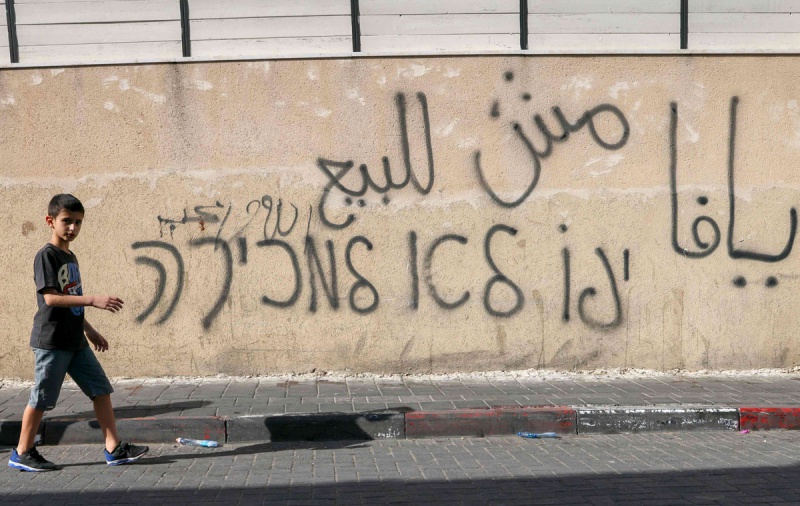 يافا مش للبيع
יפו לא למכירה